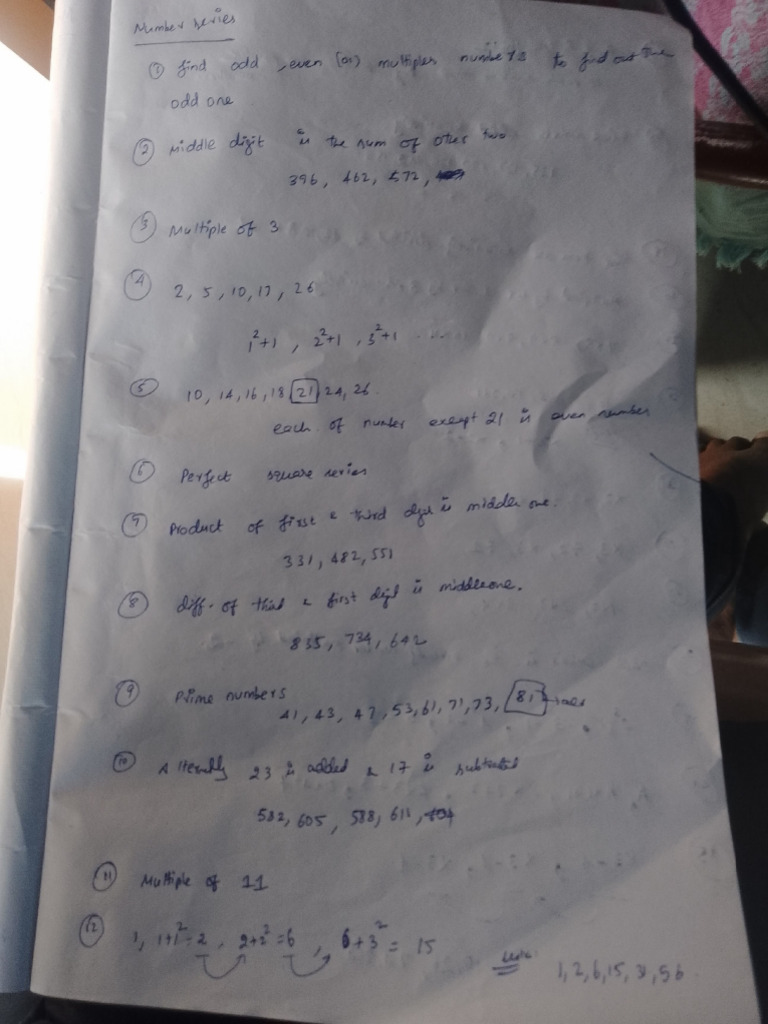 Number series
① find odd, even (or) multiples numbers to find out the
odd one
② Middle digit is the sum of other two
396, 462, 572,
③ Multiple of 3
④ 2, 5, 10, 17, 26
1²+1, 2²+1, 3²+1 ...
⑤ 10, 14, 16, 18, 21, 24, 26
each of number except 21 is even number
⑥ Perfect square series
⑦ Product of first & third digit is middle one.
331, 482, 551
⑧ diff. of third & first digit is middle one.
835, 734, 642
⑨ Prime numbers
41, 43, 47, 53, 61, 71, 73, 81
⑩ Alternately 23 is added & 17 is subtracted
582, 605, 588, 611,
⑪ Multiple of 11
⑫ 1, 1+1²=2, 2+2²=6, 6+3²=15
1, 2, 6, 15, 31, 56